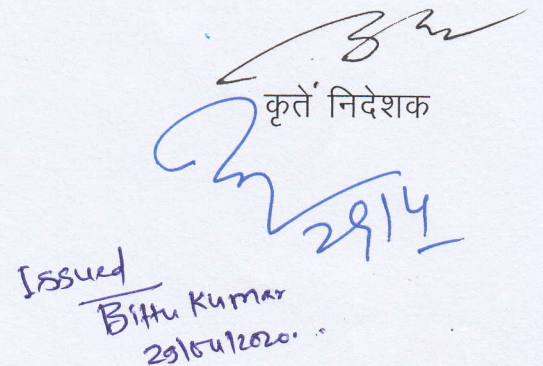 कृतें निदेशक
29/4
Issued
Bittu Kumar
29/04/2020.